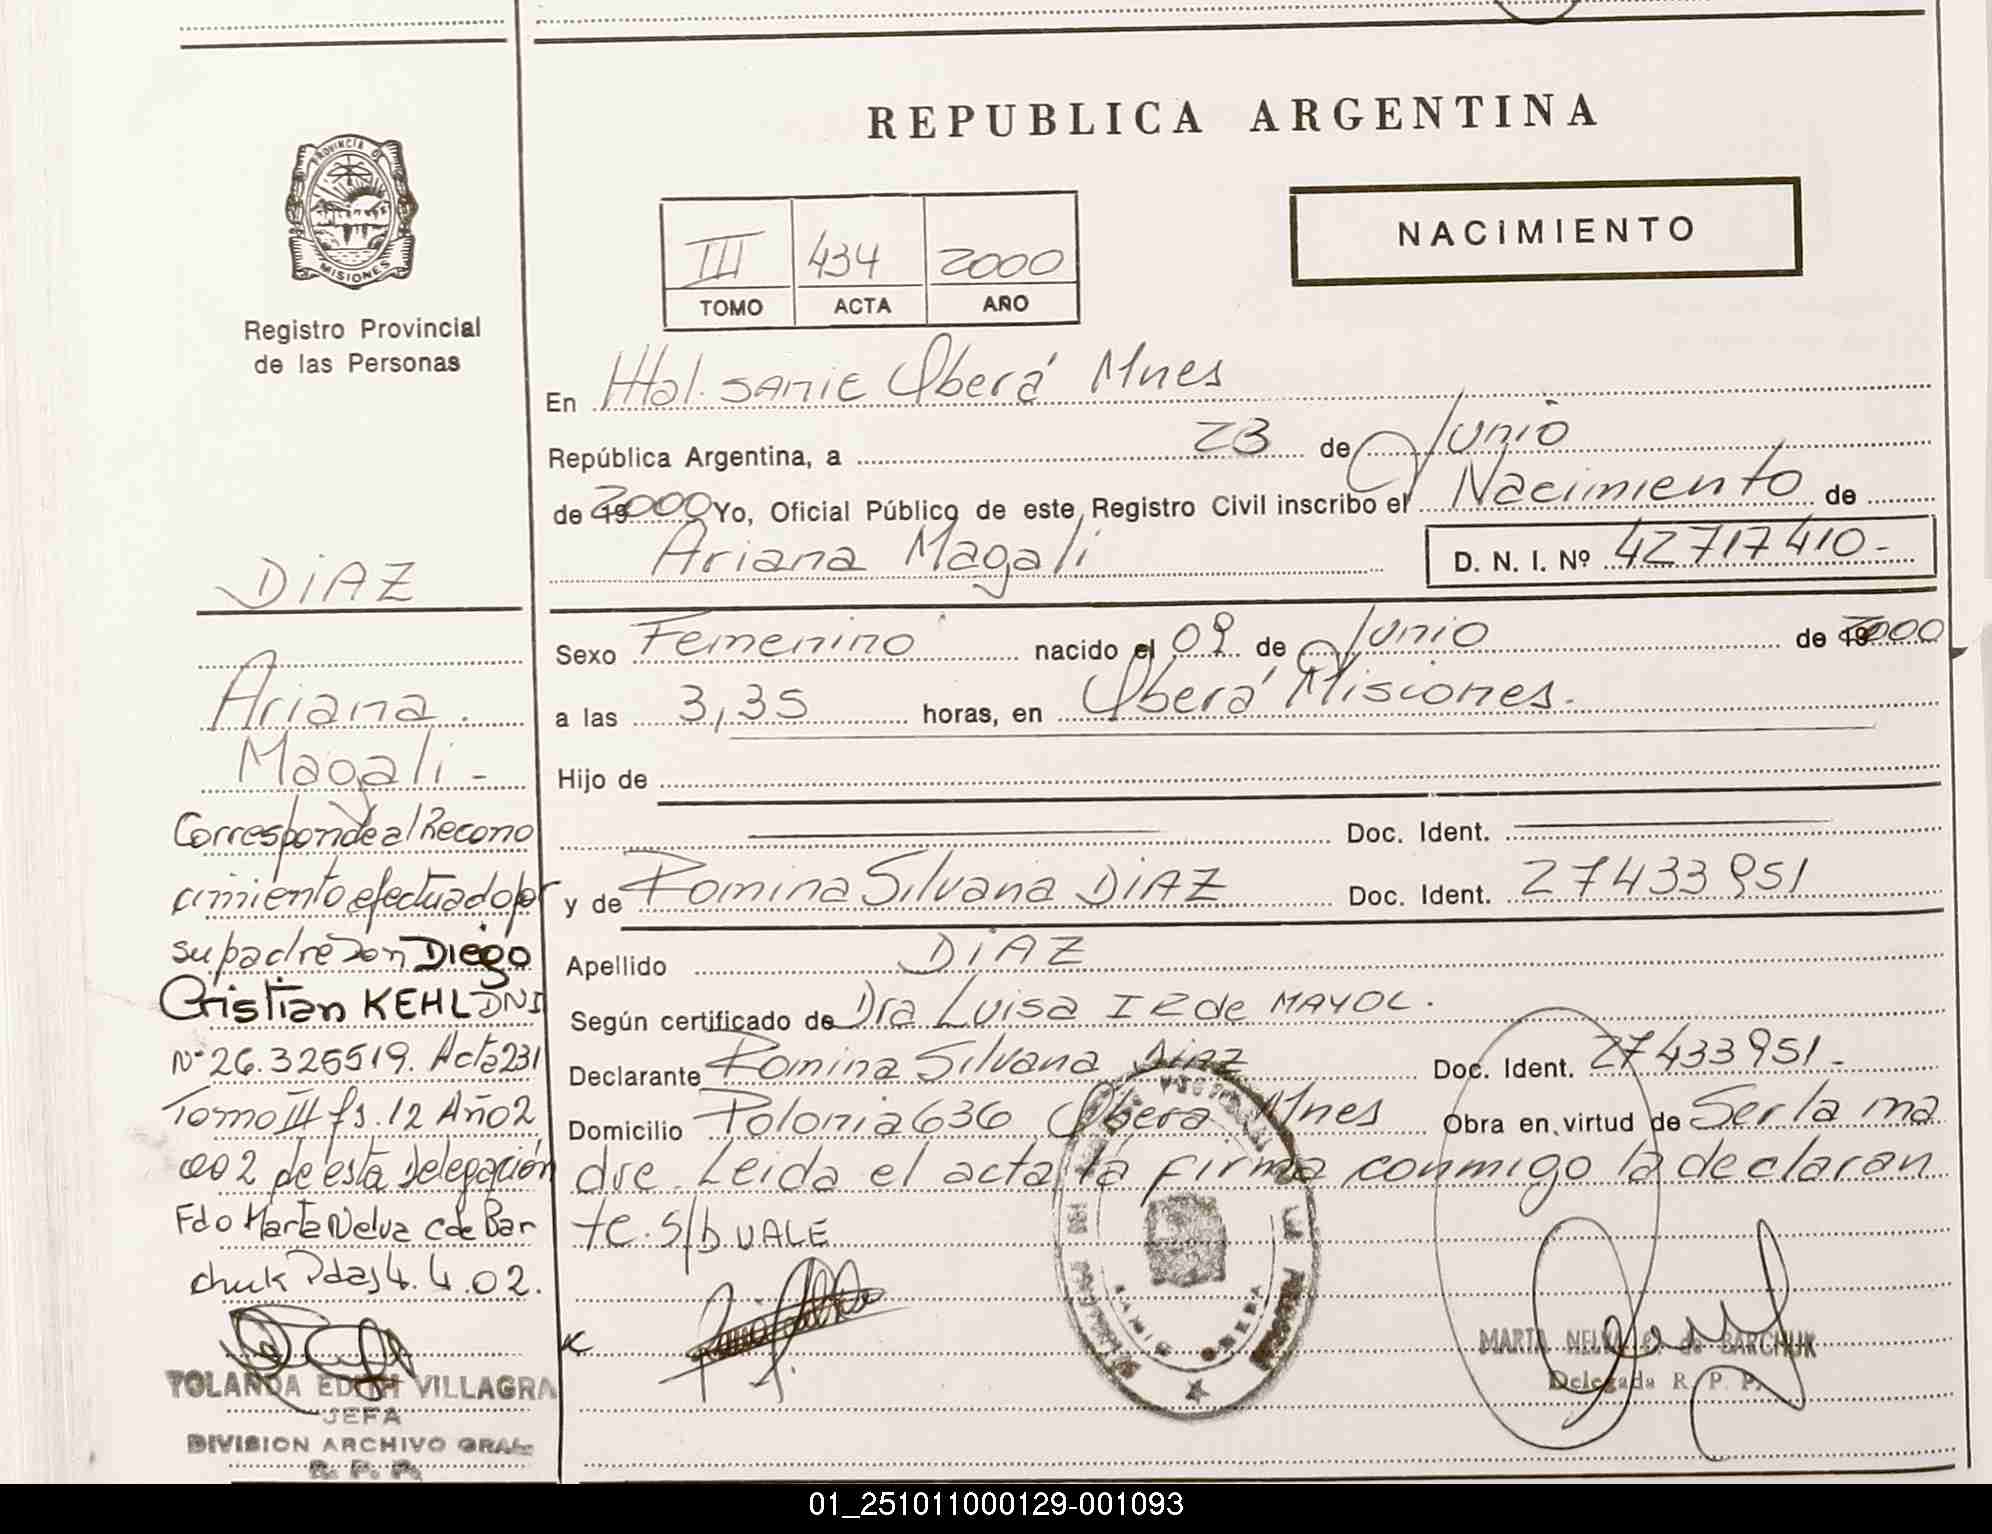 REPUBLICA ARGENTINA
NACIMIENTO
PROVINCIA DE
MISIONES
Registro Provincial
de las Personas
III 434 2000
TOMO ACTA AÑO
En Htal. SAMIC Oberá Mnes
República Argentina, a 23 de Junio
de 2000 Yo, Oficial Público de este Registro Civil inscribo el Nacimiento de
Ariana Magali D. N. I. Nº 42717410-
Sexo Femenino nacido el 09 de Junio de 2000
a las 3,35 horas, en Oberá Misiones.
Hijo de
Doc. Ident.
y de Romina Silvana DIAZ Doc. Ident. 27433951
Apellido DIAZ
Según certificado de Dra Luisa I R de MAYOL.
Declarante Romina Silvana DIAZ Doc. Ident. 27433951-
Domicilio Polonia 636 Oberá Mnes Obra en virtud de Ser la ma
dre. Leida el acta la firma conmigo la declaran
te. S/b VALE
SAMIC OBERA
MARTA NELVA C. de BARCHUK
Delegada R. P. P.
DIAZ
Ariana
Magali-
Corresponde al Recono
cimiento efectuado por
su padre Don Diego
Cristian KEHL DNI
Nº 26.326519. Acta 231
Tomo III fs. 12 Año 2
002 de esta Delegación
Fdo Marta Nelva C de Bar
chuk Pdas 4.4.02.
YOLANDA EDITH VILLAGRA
JEFA
DIVISION ARCHIVO GRAL.
R. P. P.
01_251011000129-001093